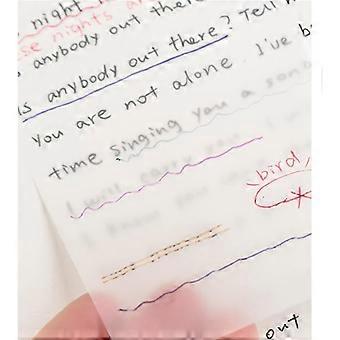 night
se nights a
anybody out there
is anybody out there? Tell m
you are not alone. I've b
time singing you a song
I will carry you
bird
I know you
out